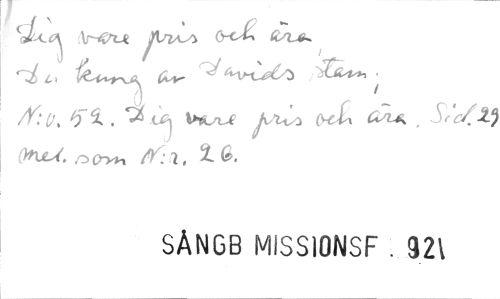 Dig vare pris och ära,
Du kung av Davids stam;
N:o. 52. Dig vare pris och ära. Sid. 29
mel. som N:r. 26.
SÅNGB MISSIONSF. 921